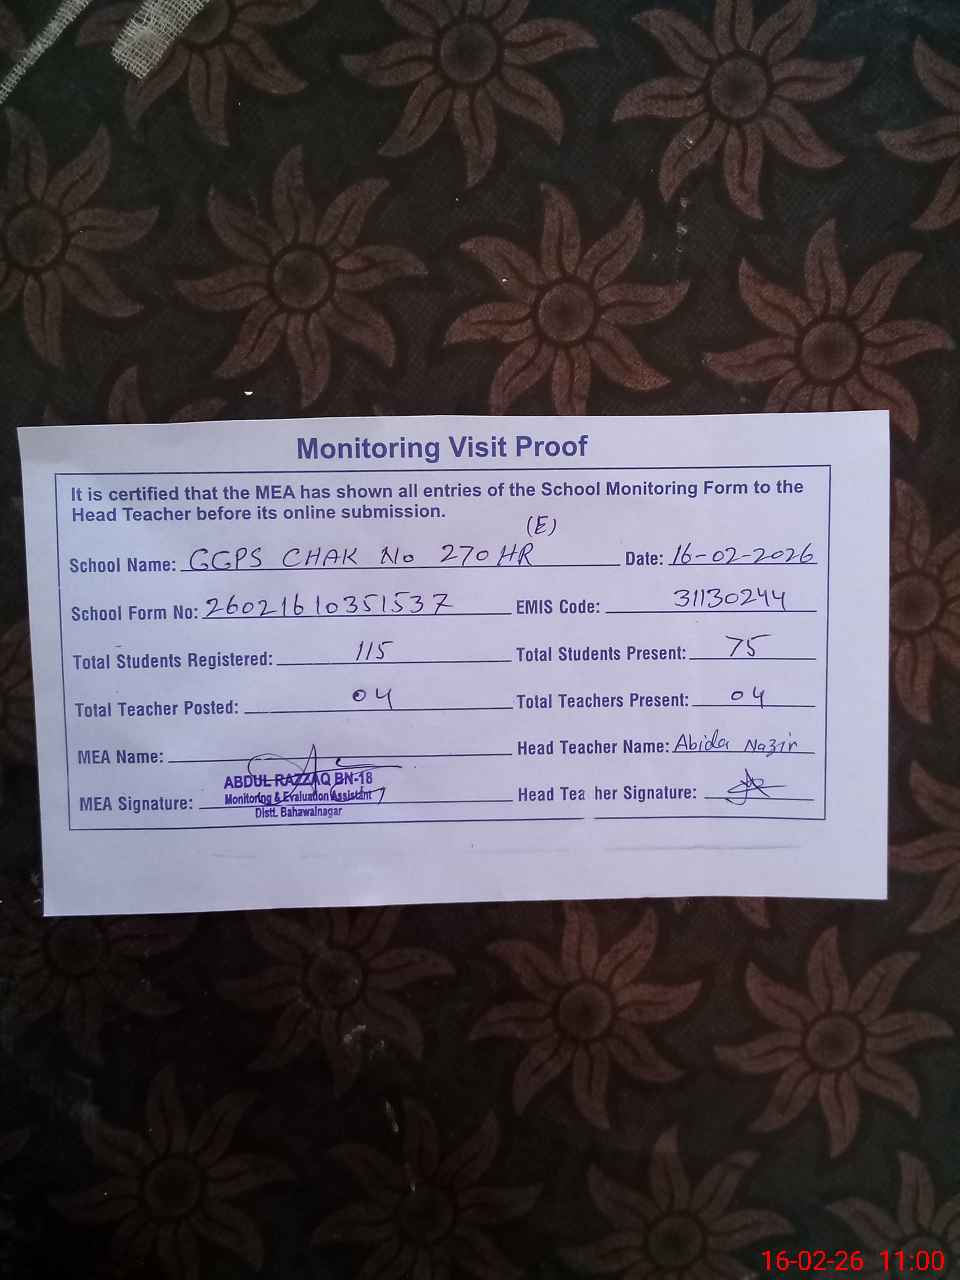 Monitoring Visit Proof
It is certified that the MEA has shown all entries of the School Monitoring Form to the
Head Teacher before its online submission.
(E)
School Name: GGPS CHAK No 270 HR Date: 16-02-2026
School Form No: 26021610351537 EMIS Code: 31130244
Total Students Registered: 115 Total Students Present: 75
Total Teacher Posted: 04 Total Teachers Present: 04
MEA Name: Head Teacher Name: Abida Nazir
ABDUL RAZZAQ BN-18
Monitoring & Evaluation Assistant
Distt. Bahawalnagar
MEA Signature: Head Tea her Signature:
16-02-26 11:00